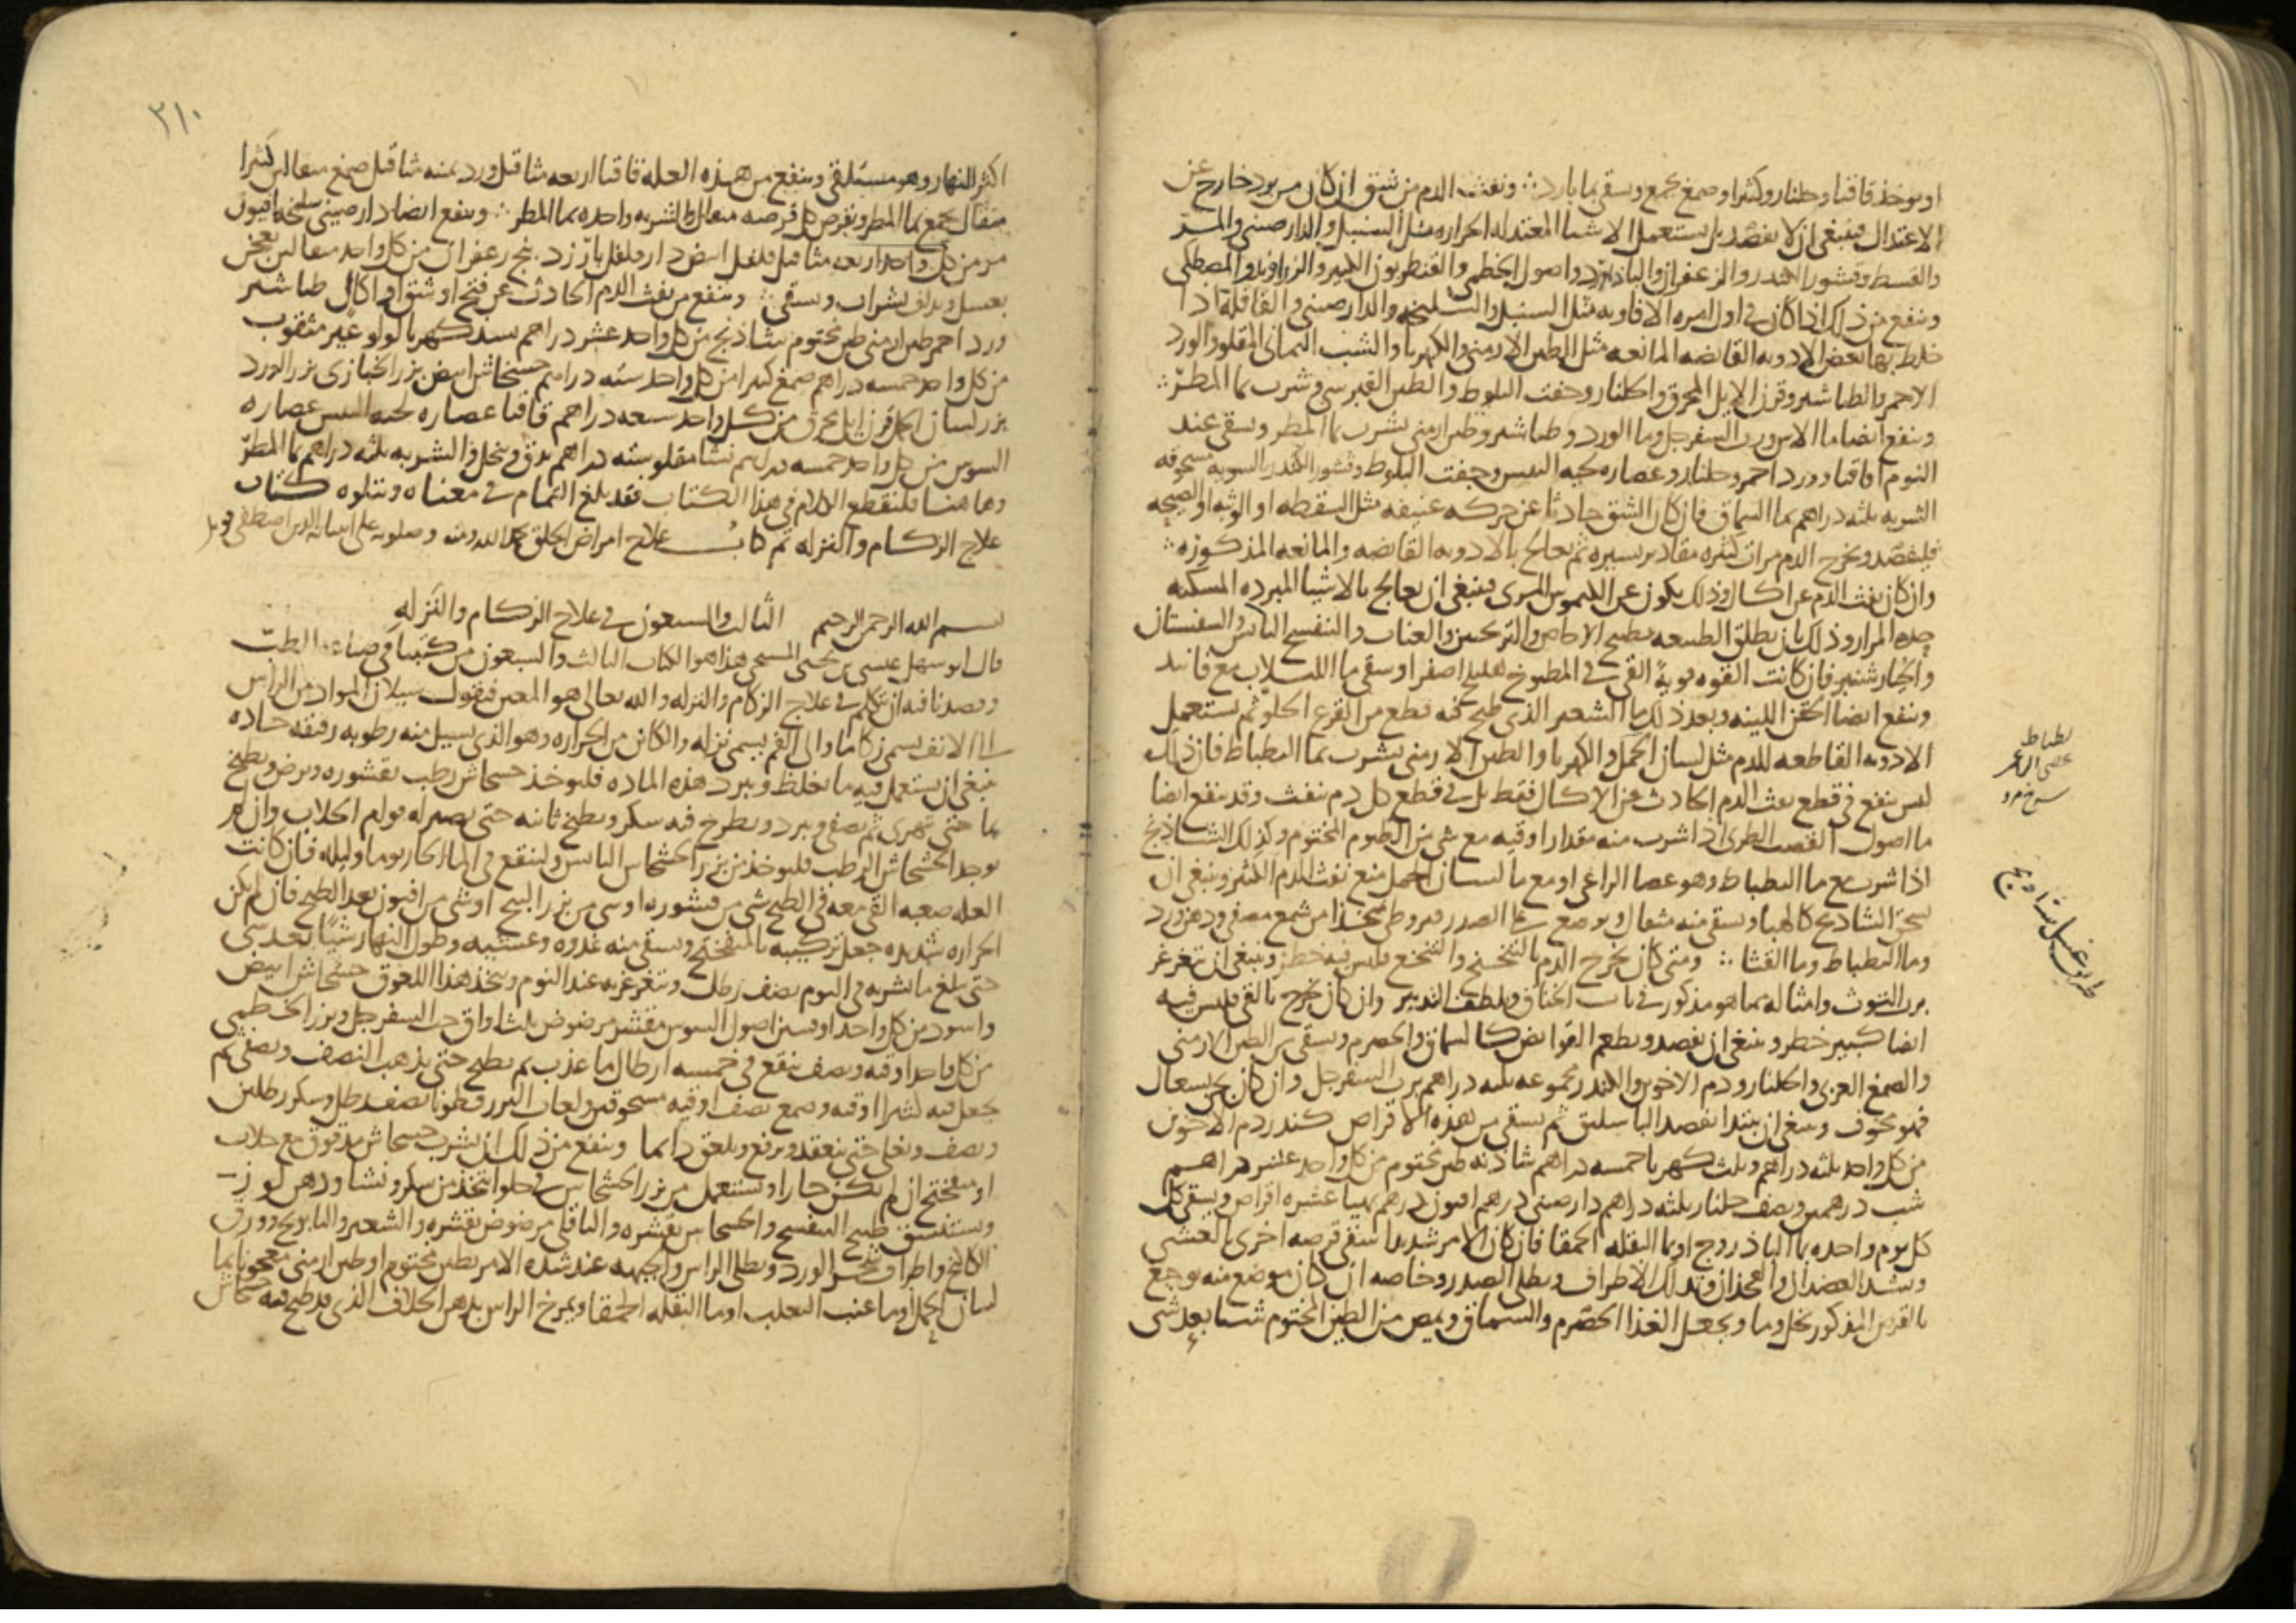 او يوخذ قاقيا وجلنار وكثيرا وصمغ يجمع ويسقى بما بارد ونفث الدم من شق ان كان من برد خارج عن
الاعتدال فينبغي ان لا يفصد بل يستعمل الاشيا المعتدله الحراره مثل السنبل والدارصيني والمر
والقسط وقشور الكندر والزعفران واصول الخطمي والقنطريون الكبير والزراوند والمصطكي
وينفع من ذلك اذا كان في اول امره الافاويه مثل السنبل والسليخه والدارصيني والقاقلة اذا
خلط بها بعض الادويه القابضه المانعه مثل الطين الارمني والكهربا والشب اليماني المقلو والورد
الاحمر والطباشير وقرن الايل المحرق والجلنار وجفت البلوط والطين القبرسي وشرب بما المطر
وينفع ايضا ما الاس ورب السفرجل وما الورد وطباشير وطين ارمني يشرب بما المطر ويسقى عند
النوم اقاقيا وورد احمر وجلنار وعصاره لحيه التيس وجفت البلوط وقشور الكندر بالسويه مسحوقه
الشربه ثلثه دراهم بما السماق فان كان الشق حادثا عن حركه عنيفه مثل السقطه او الوثبه او الصيحه
فليفصد ويخرج الدم مرات كثيره مقادير يسيره ثم يعالج بالادويه القابضه والمانعه المذكوره
وان كان نفث الدم عن اكال وذلك يكون عن الكيموس المري فينبغي ان يعالج بالاشيا المبرده المسكنه
حده المرار وذلك بان يطلق الطبيعه بطبيخ الاجاص والترنجبين والعناب والبنفسج اليابس والسفستان
والخيار شنبر فان كانت القوه قويةً القي في المطبوخ هليلج اصفر او سقي ما اللبلاب مع فانيد
وينفع ايضا الحقن اللينه وبعد ذلك ما الشعير الذي طبخ فيه قطع من القرع الحلو ثم يستعمل
الادويه القاطعه للدم مثل لسان الحمل والكهربا والطين الارمني يشرب بما البطباط فان ذلك
ليس ينفع في قطع نفث الدم الحادث عن الاكال فقط بل في قطع كل دم ينفث وقد ينفع ايضا
ما اصول القصب الطري اذا شرب منه مقدار اوقيه مع شي من الطين المختوم وكذلك الشاذنج
اذا شرب مع ما البطباط وهو عصا الراعي او مع ما لسان الحمل منع نفث الدم الكثير وينبغي ان
يسحق الشاذنج كالهبا ويسقى منه مثقال ويوضع على الصدر قيروطي متخذا من شمع مصفى ودهن ورد
وما البطباط وما القثا ومتى كان يخرج الدم بالتنحنح والتنخع فليس فيه خطر وينبغي ان يتغرغر
برب التوث وامثاله مما هو مذكور في باب الخناق ويلطف التدبير وان كان يخرج بالقي فليس فيه
ايضا كبير خطر وينبغي ان يفصد ويطعم القوابض كالسماق والحصرم ويسقى من الطين الارمني
والصمغ العربي والجلنار ودم الاخوين والكندر مجموعه ثلثه دراهم برب السفرجل وان كان يجي بسعال
فهو مخوف وينبغي ان يبتدا بفصد الباسليق ثم يسقى من هذه الاقراص كندر دم الاخوين
من كل واحد ثلثه دراهم وثلث كهربا خمسه دراهم شاذنه طين مختوم من كل واحد عشر دراهم
شب درهمين ونصف جلنار ثلثه دراهم دارصيني درهم افيون درهم يهيا عشره اقراص ويسقى
كل يوم واحده بما الباذروج او بما البقله الحمقا فان كان الامر شديدا سقي قرصه اخرى بالعشي
ويشد العضدان والفخذان وتدلك الاطراف ويطلى الصدر وخاصه ان كان موضع منه يوجع
بالقرص المذكور بخل وما ويجعل الغذا الحصرم والسماق ويمص من الطين المختوم شيا بعد شي
بطباط
عصى الراعى
طريق غسل شادنج
٣١٠
اكثر النهار وهو مستلقي وينفع من هذه العله قاقيا اربعه مثاقيل ورد ثمنه مثاقيل صمغ مثقالين كثيرا
مثقال يجمع بما المطر ويقرص كل قرصه مثقال الشربه واحده بما المطر وينفع ايضا دارصيني سليخه افيون
مر من كل واحد اربعه مثاقيل فلفل ابيض دارفلفل بارزد بنج زعفران من كل واحد مثقالين يعجن
بعسل ويداف بشراب ويسقى وينفع من نفث الدم الحادث عن فتح او شق او اكال طباشير
ورد احمر طين ارمني طين مختوم شاذنج من كل واحد عشر دراهم بسد كهربا لولو غير مثقوب
من كل واحد خمسه دراهم صمغ كثيرا من كل واحد سته دراهم خشخاش ابيض بزر الخبازى بزر الورد
بزر لسان الحمل قرن ايل محرق من كل واحد سبعه دراهم قاقيا عصاره لحيه التيس عصاره
السوس من كل واحد خمسه دراهم نشا مقلو سته دراهم يدق وينخل والشربه ثلثه دراهم بما المطر
وهاهنا فلنقطع الكلام في هذا الكتاب فقد بلغ التمام في معناه ويتلوه كتاب
علاج الزكام والنزله تم كتاب علاج امراض الحلق بحمد الله ومنه وصلوته على
بسم الله الرحمن الرحيم الثالث والسبعون في علاج الزكام والنزله
قال ابو سهل عيسى بن يحيى المسيحي هذا هو الكتاب الثالث والسبعون من كتبنا في صناعة الطب
وقصدنا فيه ان نتكلم في علاج الزكام والنزله والله تعالى هو المعين فنقول سيلان المواد من الراس
الى الانف يسمى زكاما والى الفم يسمى نزله والكائن من الحراره وهو الذي يسيل منه رطوبه رقيقه حاده
ينبغي ان يستعمل فيه ما يغلظ ويبرد هذه الماده فليوخذ خشخاش رطب بقشوره ويرض ويطبخ
بما حتى يتهرى ثم يصفى ويبرد ويطرح فيه سكر ويطبخ ثانيه حتى يصير له قوام الجلاب وان لم
يوجد الخشخاش الرطب فليوخذ من بزر الخشخاش اليابس ولينقع في الما الحار يوما وليله فان كانت
العله صعبه القي معه في الطبخ شي من قشوره او شي من بزر البنج او شي من افيون بعد الطبخ فان لم يكن
الحراره شديده جعل تركيبه بالميفختج ويسقى منه غدوه وعشيه وطول النهار شيًا بعد شي
حتى يبلغ ما يشربه في اليوم نصف رطل ويتغرغر به عند النوم ويتخذ هذا اللعوق خشخاش ابيض
واسود من كل واحد اوقيتين اصول السوس مقشر مرضوض ثلث اواق حب السفرجل وبزر الخطمي
من كل واحد اوقيه ونصف ينقع في خمسه ارطال ما عذب ثم يطبخ حتى يذهب النصف ويصفى ثم
يجعل فيه كثيرا اوقيه وصمغ نصف اوقيه مسحوقين ولعاب البزر قطونا نصف رطل وسكر رطلين
ونصف ويغلى حتى ينعقد ويرفع ويلعق دايما وينفع من ذلك ان يشرب خشخاش مدقوق مع جلاب
او ميفختج ان لم يكن حارا ويستعمل من بزر الخشخاش في حلوا تتخذ من سكر ونشا ودهن لوز
ويستنشق طبيخ البنفسج والخشخاش بقشره والباقلي مرضوض بقشره والشعير والبابونج وورق
واطراف شجر الورد ويطلى الراس والجبهه عند شده الامر بطين مختوم او طين ارمني معجونا بما
لسان الحمل او ما عنب الثعلب او ما البقله الحمقا ويمرخ الراس بدهن الخلاف الذي قد طبخ فيه خشخاش